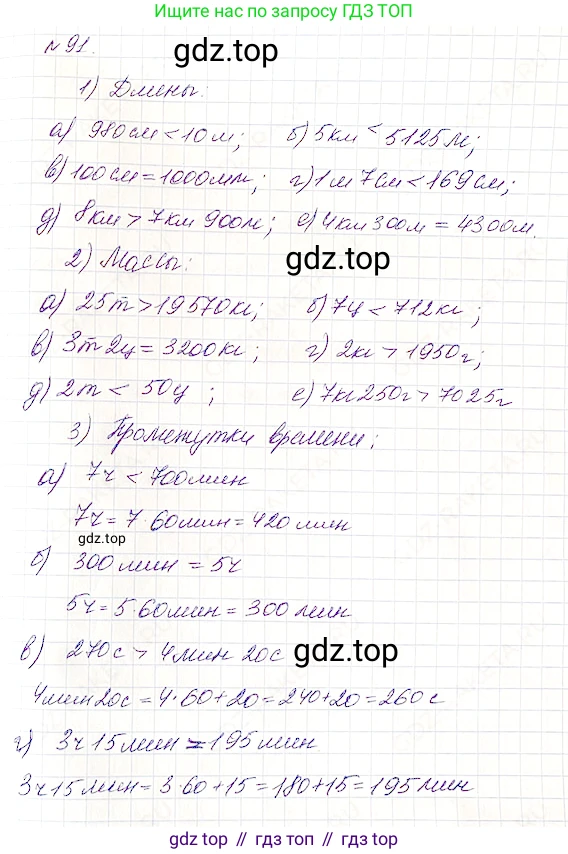 Ищите нас по запросу ГДЗ ТОП
№91.
gdz.top
1) Длины:
а) 980см < 10м; б) 5км < 5125м;
в) 100см = 1000мм; г) 1м 7см < 169см;
д) 8км > 7км 900м; е) 4км 300м = 4300м.
2) Массы:
gdz.top
а) 25т > 19570кг; б) 7ц < 712кг;
в) 3т 2ц = 3200кг; г) 2кг > 1950г;
д) 2т < 50ц; е) 7кг 250г > 7025г
3) Промежутки времени:
а) 7ч < 700мин
7ч = 7·60мин = 420мин
gdz.top
б) 300мин = 5ч
5ч = 5·60мин = 300мин
в) 270с > 4мин 20с
gdz.top
4мин 20с = 4·60+20 = 240+20 = 260с
г) 3ч 15мин = 195мин
3ч 15мин = 3·60+15 = 180+15 = 195мин
gdz.top // гдз топ // гдз.top